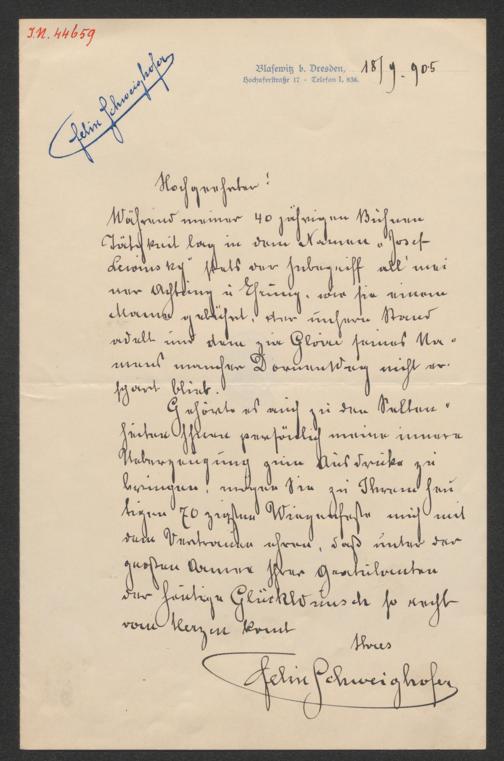 I.N. 44659
Felix Schweighofer
Blasewitz b. Dresden, 18/9. 905
Hochuferstraße 17 - Telefon I, 836.
Hochgeehrter!
Während meiner 40 jährigen Bühnen
Tätigkeit lag in dem Namen "Josef
Lewinsky" stets der Inbegriff all' mei
ner Achtung u Ehrung, wie sie einem
Manne gebührt, der unsern Stand
adelt und dem zur Gloire seines Na-
mens mancher Dornenweg nicht er-
spart blieb.
Gehörte es auch zu den Selten-
heiten Ihnen persönlich meine innere
Ueberzeugung zum Ausdrucke zu
bringen, mögen Sie zu Ihrem heu
tigen 70 zigsten Wiegenfeste mich mit
dem Vertrauen ehren, daß unter der
großen Armee Ihrer Gratulanten
der heutige Glückwunsch so recht
vom Herzen komt
Ihres
Felix Schweighofer